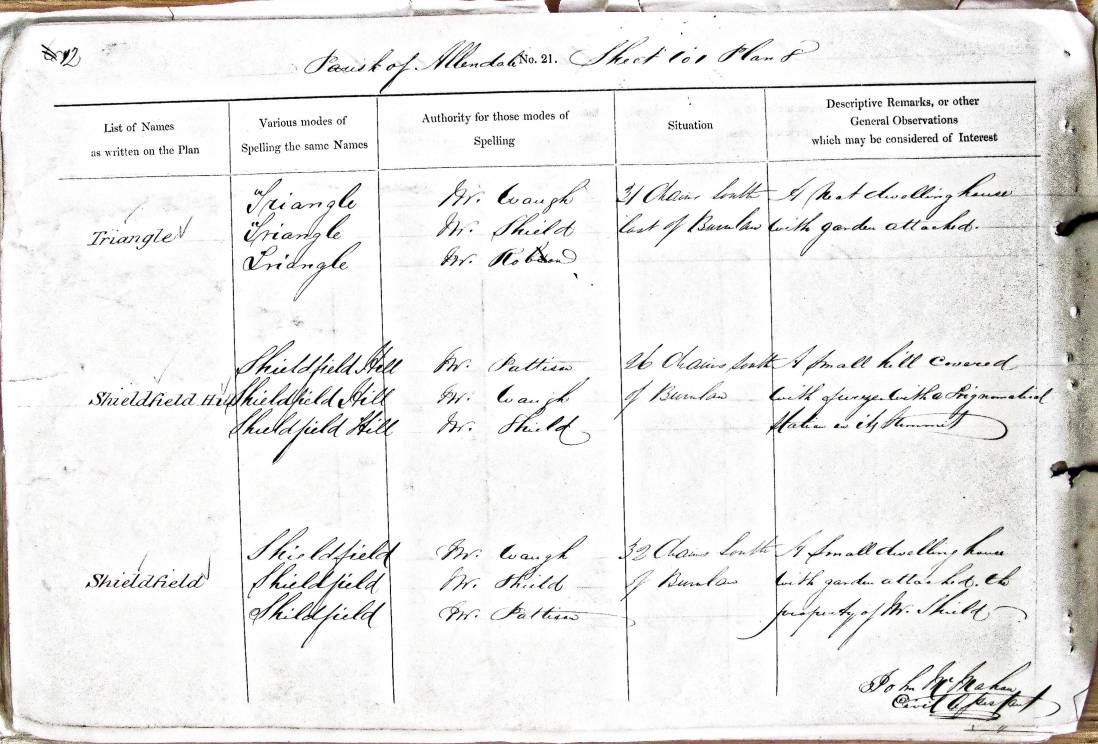 12
Parish of Allendale No. 21. Sheet 101 Plan 8
List of Names
as written on the Plan
Various modes of
Spelling the same Names
Authority for those modes of
Spelling
Situation
Descriptive Remarks, or other
General Observations
which may be considered of Interest
Triangle
Triangle
Triangle
Triangle
Mr. Waugh
Mr. Shield
Mr. Robson
31 Chains South
East of Burnlaw
A Neat dwelling house
with garden attached.
Shieldfield Hill
Shieldfield Hill
Shieldfield Hill
Shieldfield Hill
Mr. Pattison
Mr. Waugh
Mr. Shield
26 Chains South
of Burnlaw
A Small hill covered
with with a Trignomatical
Station on its Summit
Shieldfield
Shieldfield
Shieldfield
Shildfield
Mr. Waugh
Mr. Shield
Mr. Pattison
32 Chains South
of Burnlaw
A Small dwelling house
with garden attached. th
property of Mr. Shield
John McMahon
Civil Assistant